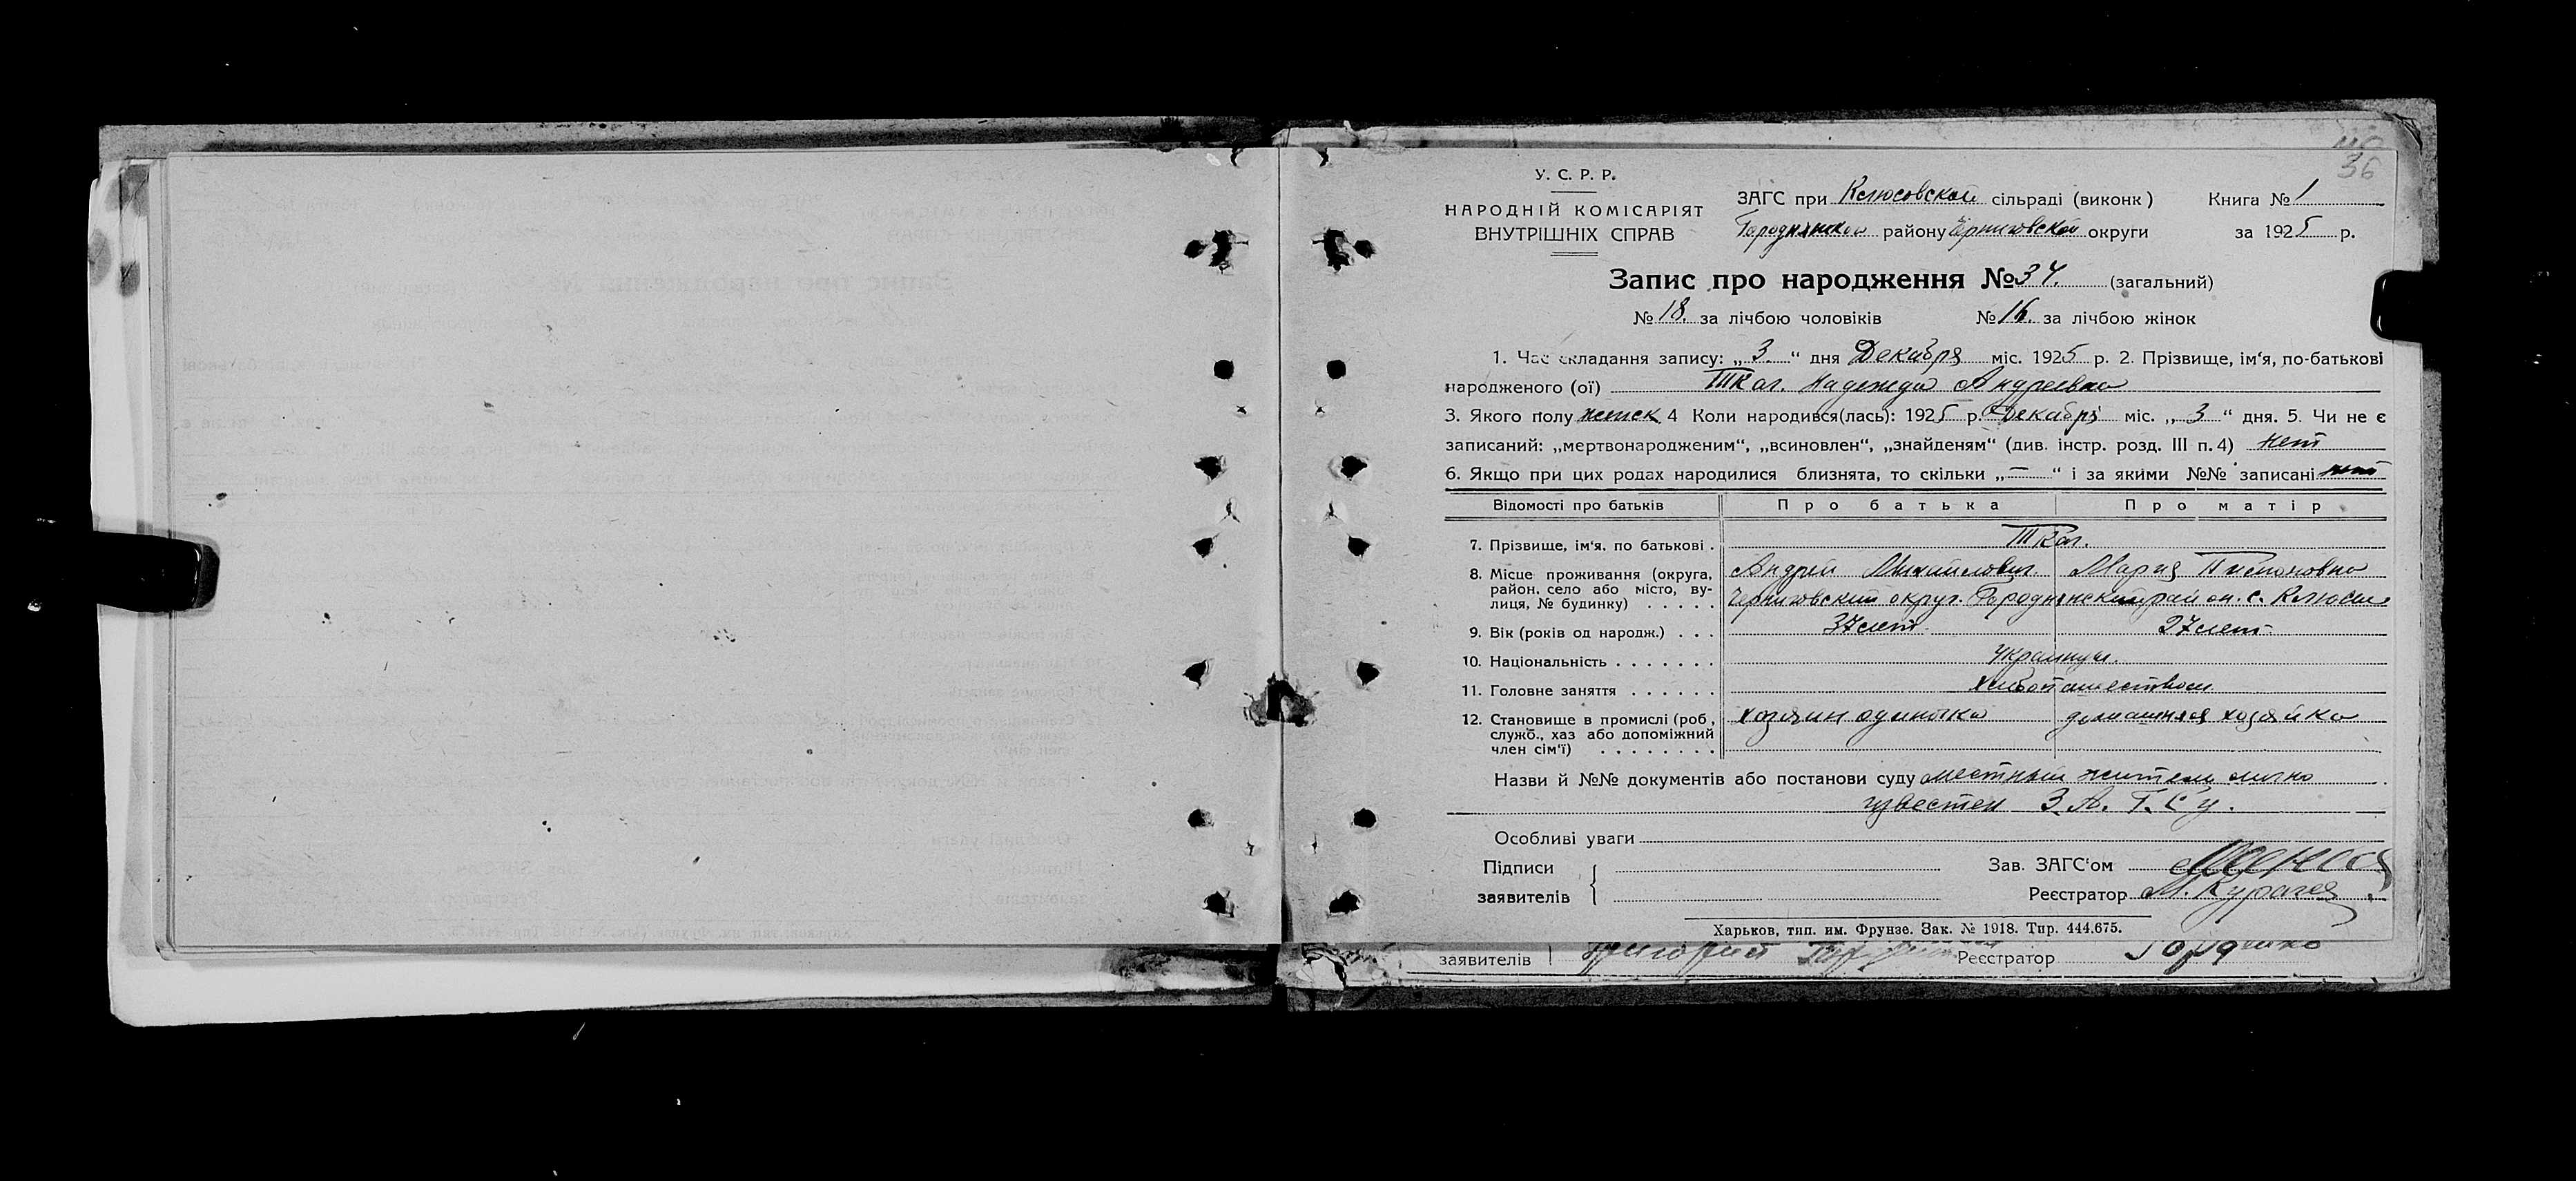 36
У. С. Р. Р.
НАРОДНІЙ КОМІСАРІЯТ
ВНУТРІШНІХ СПРАВ
ЗАГС при Клюсовской сільраді (виконк) Книга № 1
Городнянского району Черниговской округи за 1925 р.
Запис про народження № 34. (загальний)
№ 18. за лічбою чоловіків № 16. за лічбою жінок
1. Час складання запису: „ 3 “ дня Декабря міс. 1925 р. 2. Прізвище, ім‘я, по-батькові
народженого (ої) Ткач. Надежда Андреевна
3. Якого полу женск 4 Коли народився(лась): 1925 р. Декабря міс. „ 3 “ дня. 5. Чи не є
записаний: „мертвонародженим“, „всиновлен“, „знайденям“ (див. інстр. розд. III п. 4) нет
6. Якщо при цих родах народилися близнята, то скільки „—“ і за якими №№ записані нет
Відомості про батьків Про батька Про матір
7. Прізвище, ім‘я, по батькові . Ткач.
8. Місце проживання (округа, Андрей Михайлович Мария
район, село або місто, ву- Черниговский округ. Городнянский район. с. Клюсы
лиця, № будинку) . . . . .
9. Вік (років од народж.) . . . 37 лет. 27 лет.
10. Національність . . . . . . . Украинцы.
11. Головне заняття . . . . . . хлебопашеством
12. Становище в промислі (роб., хозяин одиночка домашняя хозяйка
служб., хаз або допоміжний
член сім‘ї) . . . . . . . .
Назви й №№ документів або постанови суду местный житель лично
известен З. А. Г. С у.
Особливі уваги
Підписи Зав. ЗАГС‘ом
заявителів Реєстратор М.
Харьков, тип. им. Фрунзе. Зак. № 1918. Тир. 444.675.
заявителів Григорий Реєстратор